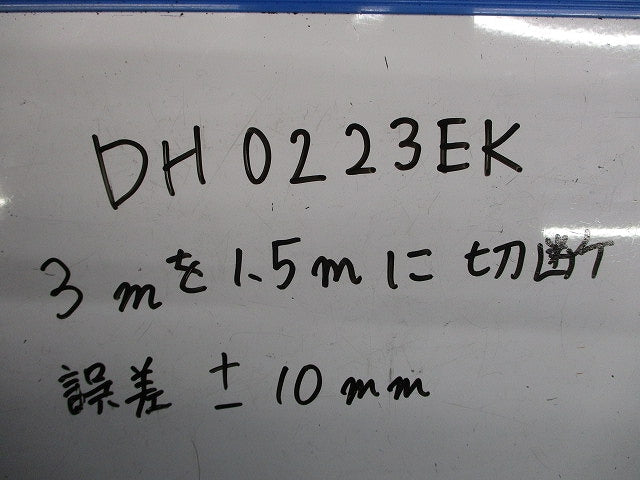 DH0223EK
3mを1.5mに切断
誤差 ± 10mm